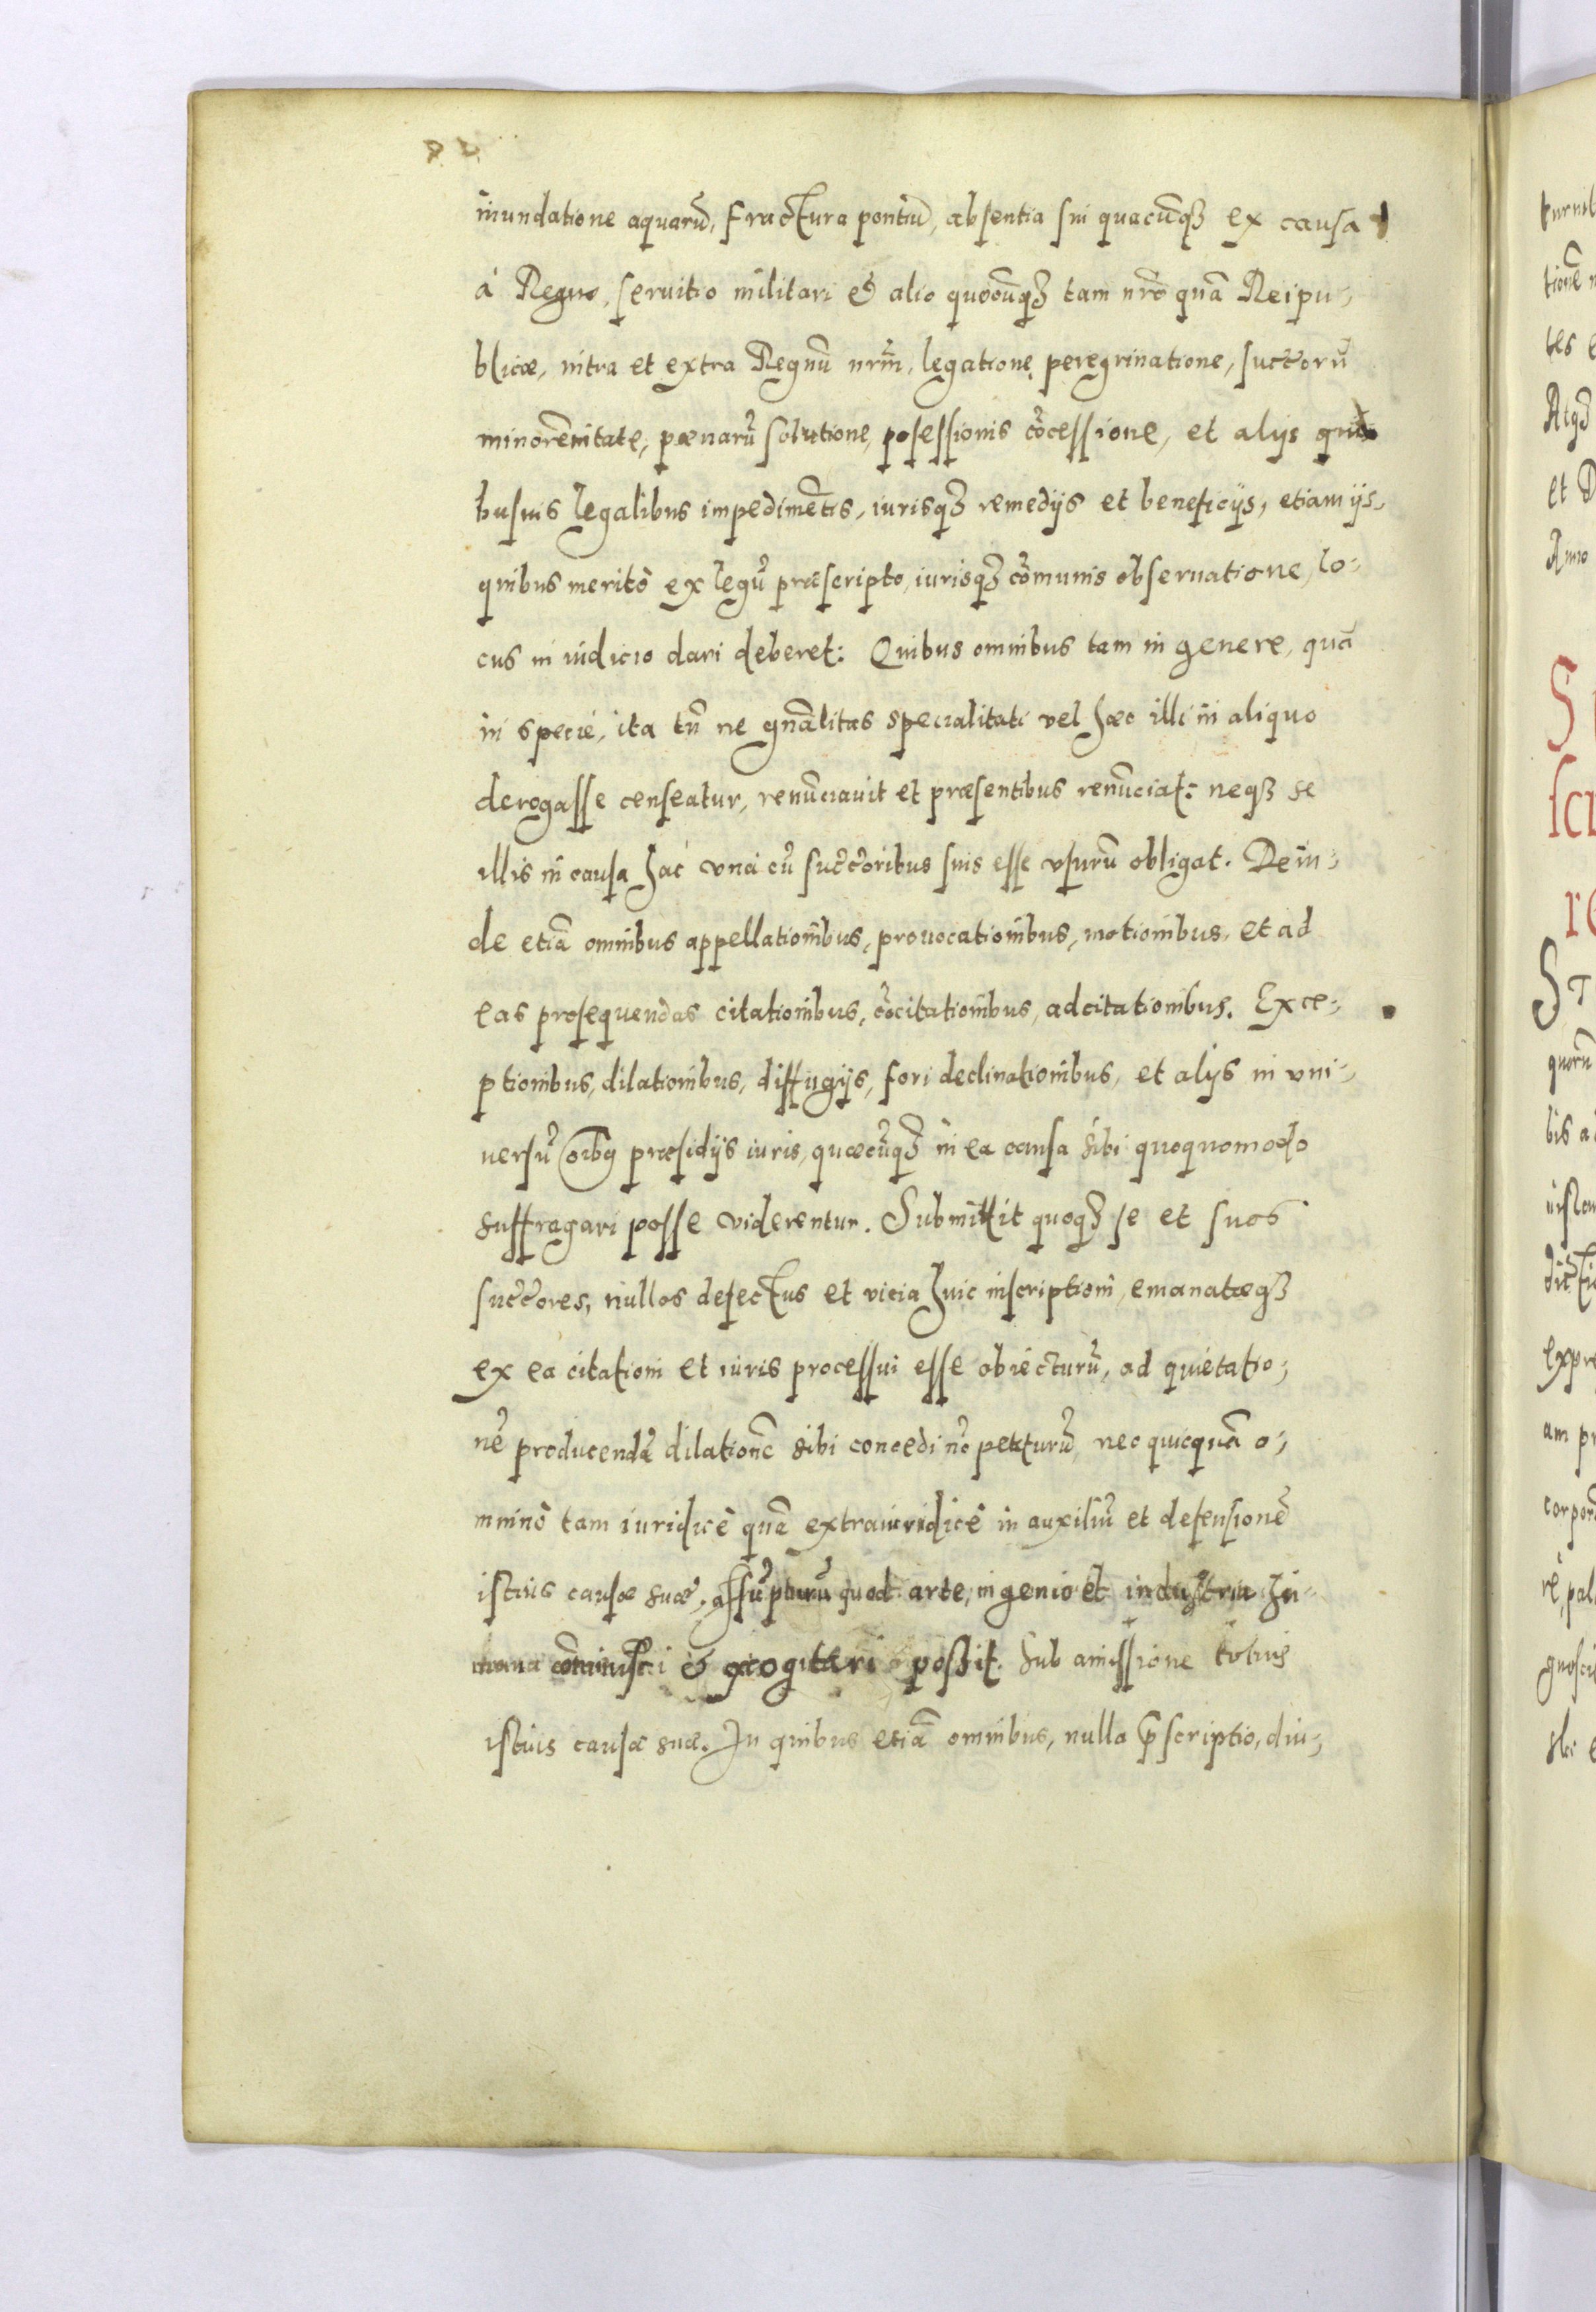 inundatione aquarũ, fractura pontiũ, absentia sui quacũqꝫ ex causa
à Regno, seruitio militari & alio quocũqꝫ tam nrõ quã Reipu-
blicæ, intra et extra Regnũ nrm̃, legatione, peregrinatione, succ̃orũ
minorẽnitate, pœnarũ solutione, posessionis cõcessione, et alijs qui
busuis legalibus impedimẽtis, iurisqꝫ remedijs et beneficijs, etiam ijs,
quibus meritò ex legũ præscripto, iurisqꝫ cõmunis obseruatione, lo-
cus in iudicio dari deberet: Quibus omnibus tam in genere, quã
in specie, ita tñ ne gñalitas specialitati vel hæc illi in aliquo
derogasse censeatur, renũciauit et præsentibus renũciat: neqꝫ se
illis in causa hac vnà cũ succ̃oribus suis esse vsurũ obligat. Dein-
de etiã omnibus appellationibus, prouocationibus, motionibus, et ad
eas prosequendas citationibus, cõcitationibus, adcitationibus. Exce-
ptionibus, dilationibus, diffugijs, fori declinationibus, et alijs in vni-
uersũ oĩbꝫ præsidijs iuris, quæcũqꝫ in ea causa sibi quoquomodo
suffragari posse viderentur. Submittit quoqꝫ se et suos
succ̃ores, nullos defectus et vicia huic inscriptioni, emanatæqꝫ
ex ea citationi et iuris processui esse obiecturũ, ad quietatio-
nẽ producendã dilationẽ sibi concedi nõ petiturũ, nec quicquã o-
mninò tam iuridicè quã extraiuridicè in auxiliũ et defensionẽ
istius causæ suæ, assũpturũ quod arte, ingenio et industria hu-
mana cõminisci & excogitari possit. Sub amissione totius
istius causæ suæ. In quibus etiã omnibus, nulla p̃scriptio, diu-